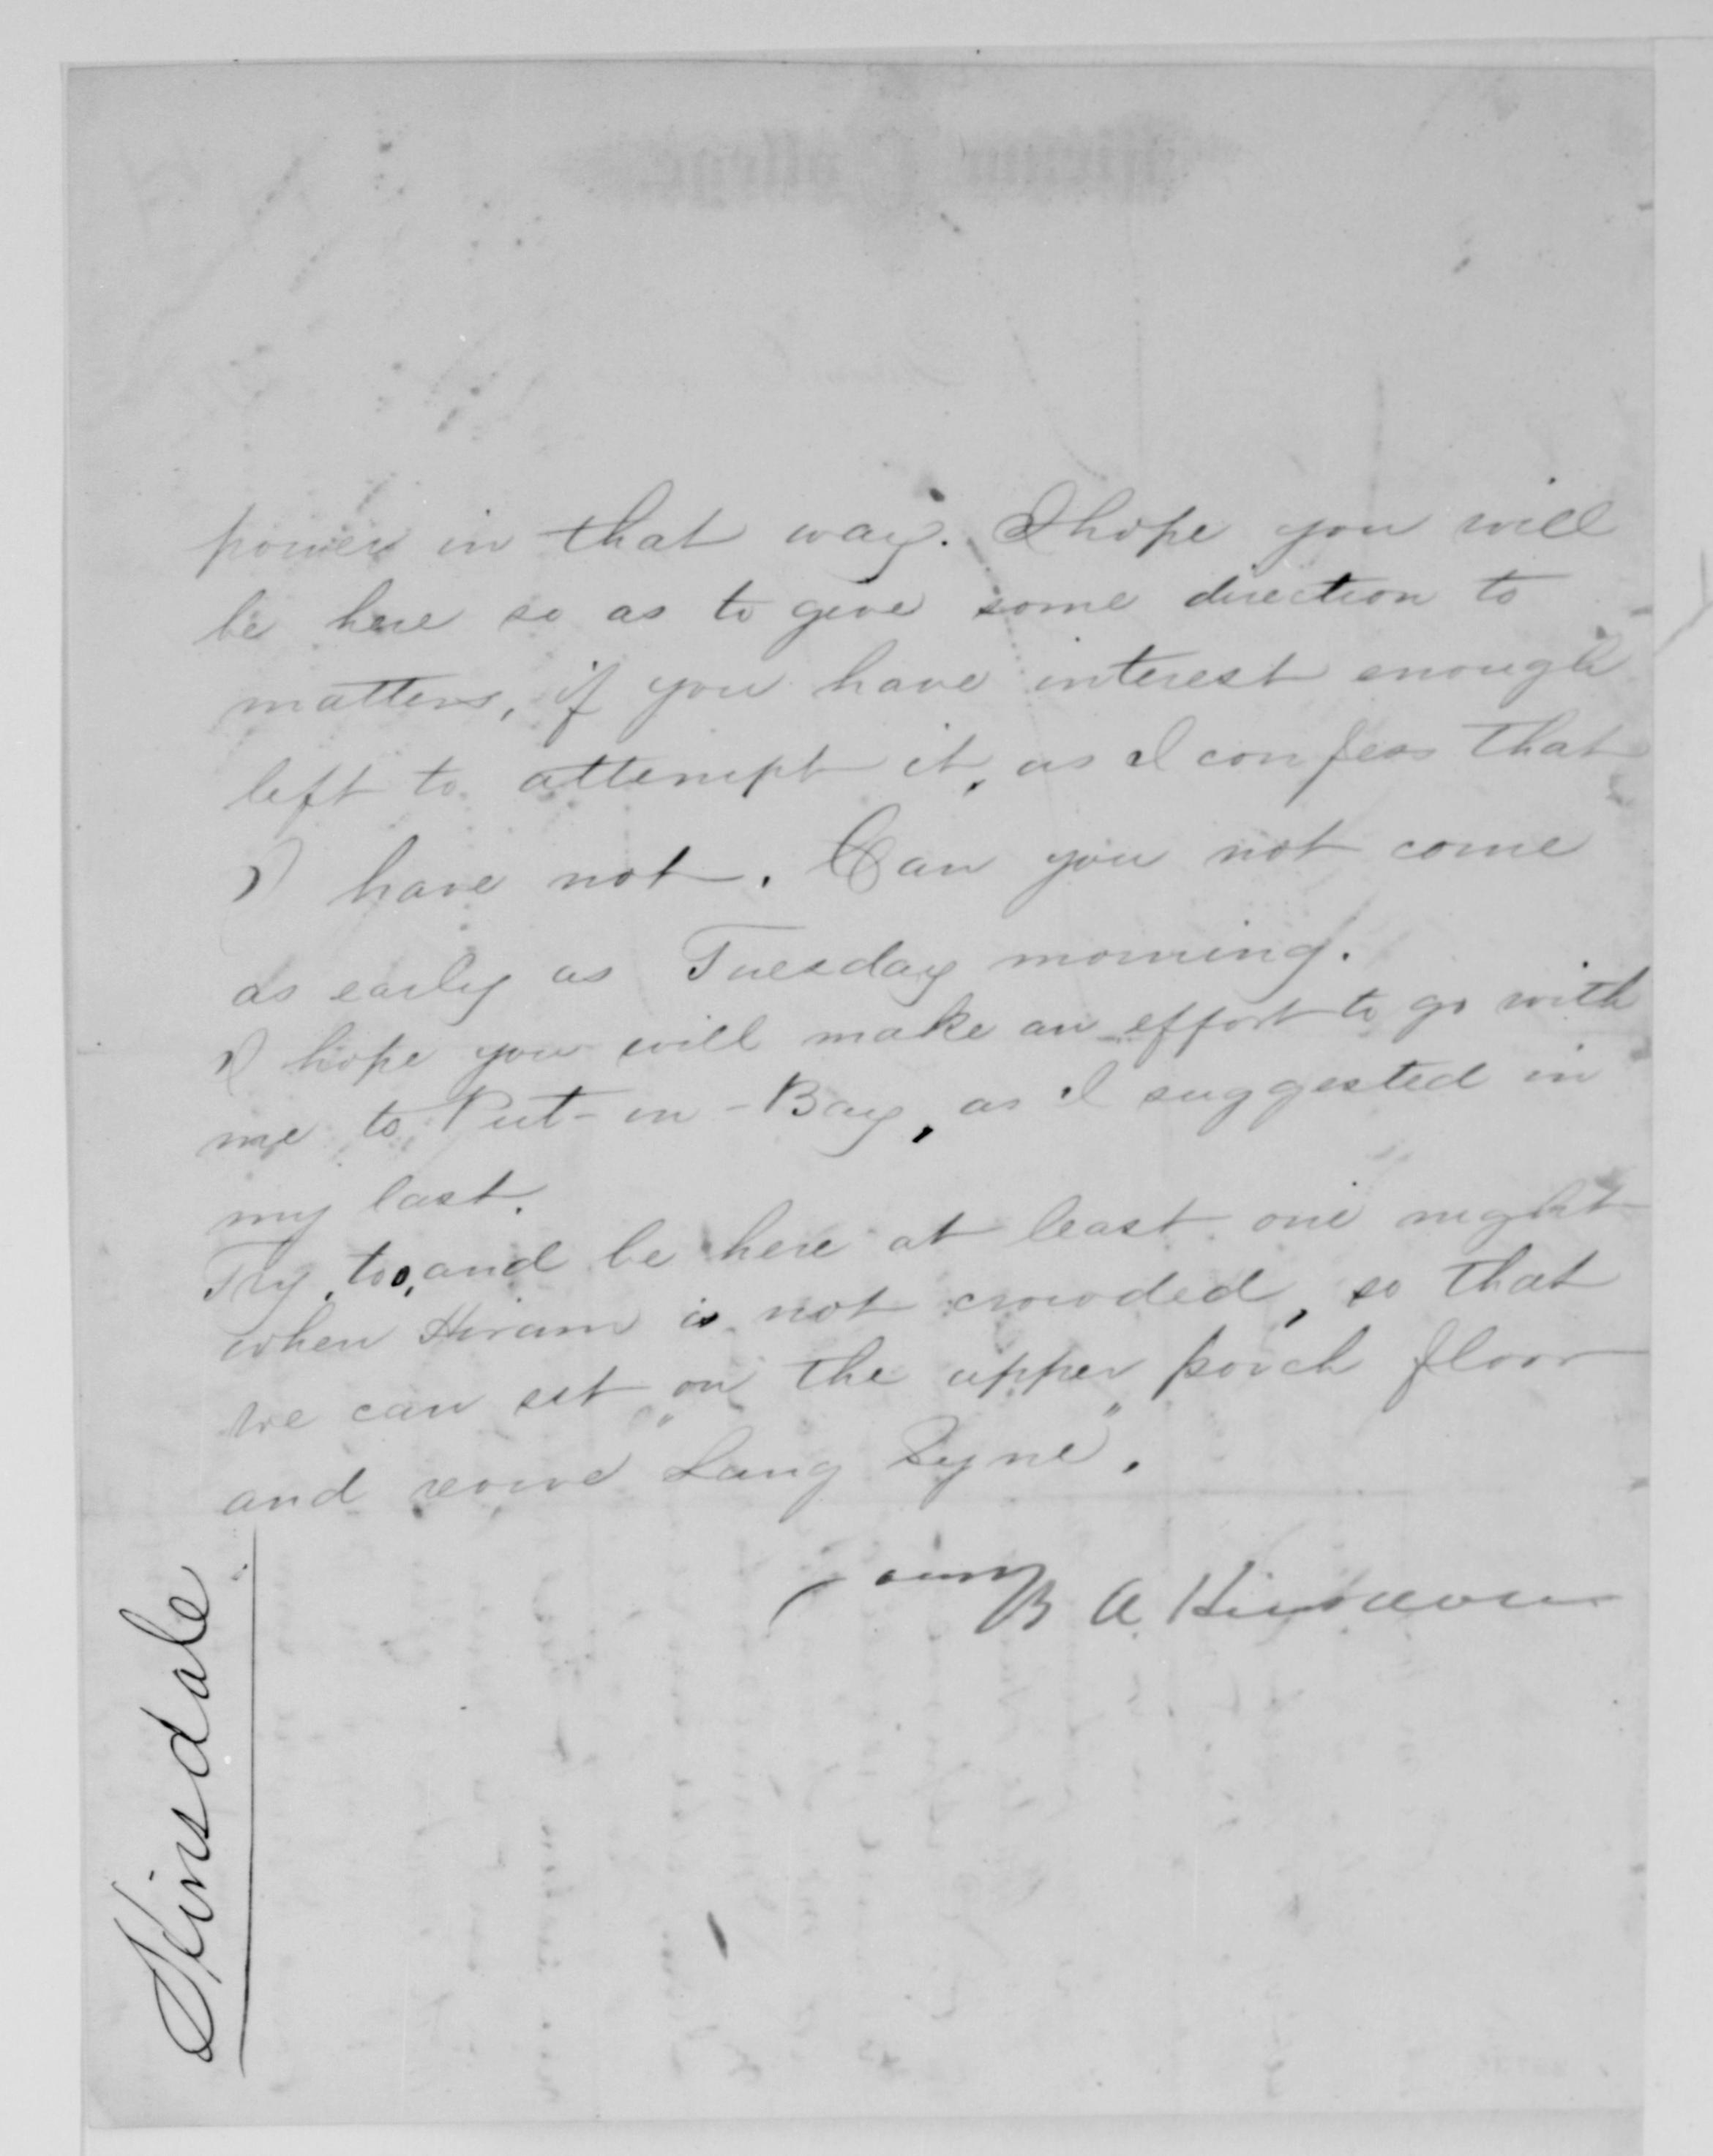 power in that way. I hope you will
be here so as to give some direction to
matters, if you have interest enough
left to attempt it, as I confess that
I have not. Can you not come
as early as Tuesday morning.
I hope you will make an effort to go with
me to Put-in-Bay, as I suggested in
my last.
Try, too, and be here at least one night
when Hiram is not crowded, so that
we can sit on the upper porch floor
and revive "Lang Syne".
Yours
B A Hinsdale
Hinsdale